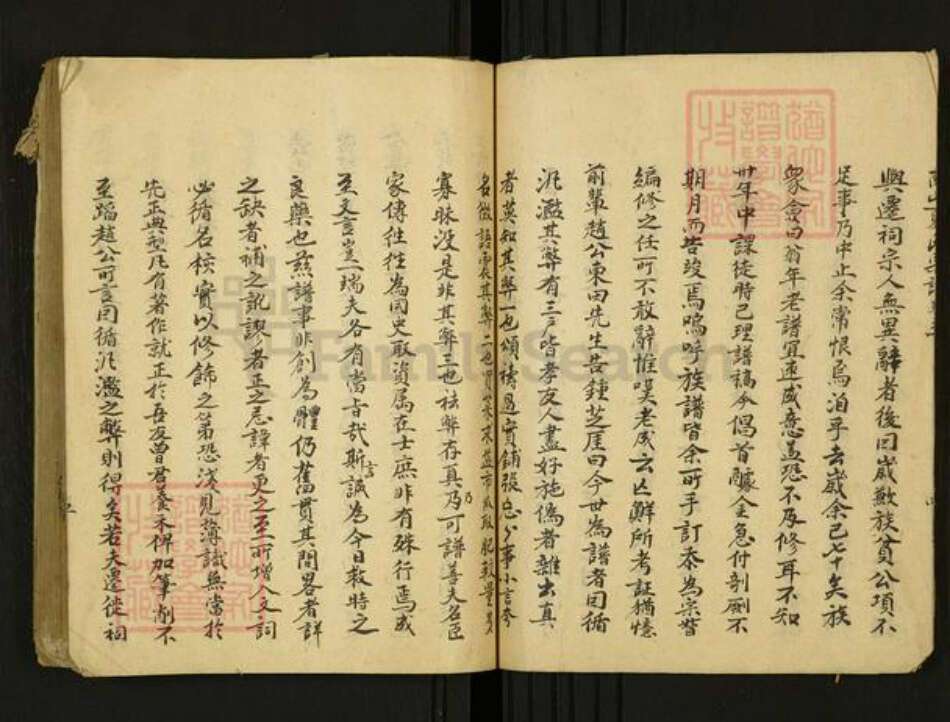 興遷祠宗人無異辭者後因歲歉族貧公項不
足事乃中止余常恨焉洎乎去歲余已七十矣族
眾會曰翁年老譜宜亟成意蓋恐不及修耳不知
廿年中課徒時已理譜稿今倡首醵金急付剞劂不
期月而告竣焉嗚呼族譜皆余一所手訂忝為宗督
編修之任一所不敢辭惟嘆老成云亡鮮所考証猶憶
前輩趙公東田先生答鍾芝厓曰今世為譜者因循
汎濫其弊有三皆孝友人盡好施偽者雜出真
者莫知其弊一也頌禱過實鋪張忘公事小言夸
名微語震其弊二也
寡昧沒是非其弊三也祛弊存真乃可譜善夫名臣
家傳往往為國史取資属在士庶非有殊行焉成
至文言豈一端夫各有當旨哉斯言誠為今日救時之
良藥也茲譜事非創為體仍舊貫其間畧者詳
之缺者補之訛謬者正之忌諱者更之至所增人文詞
必循名核實以修飾之第恐淺見薄識無當於
先正典型凡有著作就正於吾友曾君養禾俾加筆削不
至蹈趙公所言因循汎濫之弊則得矣若夫遷徙祠
FamilySearch